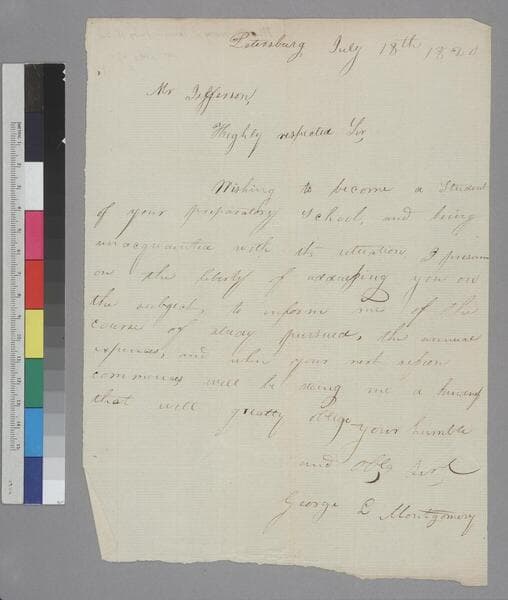 Petersburg July 18th 1820
Mr Jefferson,
Highly respected Sir,
Wishing to become a Student
of your preparatory school, and being
unacquainted with its situation I presume
on the liberty of addressing you on
the subject, to inform me of the
course of study pursued, the annual
expences, and when your next session
commences will be doing me a kindness
that will greatly oblige your humble
and Obt Servt
George L Montgomery